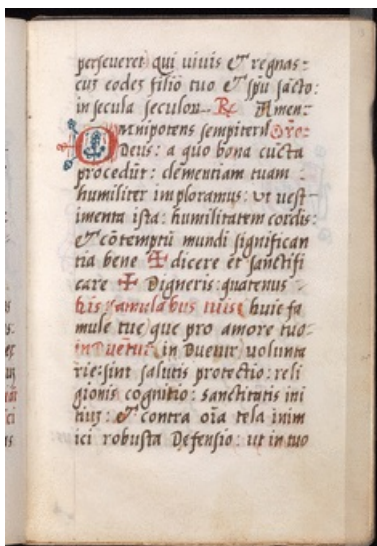 perseveret) qui vivis & regnas:
cuȝ eodeȝ filio tuo & spū sācto:
in secula seculoꝝ. ℟ Amen:
Omnipotens sempiterē Orō:
Deus: a quo bona cūcta
procedūt: clementiam tuam:
humiliter imploramus: ut vest-
imenta ista: humilitatem cordis:
& cōtemptū mundi significan
tia bene ✠ dicere et sanctifi
care ✠ Digneris: quatenus
his famulabus tuis( huic fa
mule tue) que pro amore tuo
induētur( in Duetur, volunta
rie: sint salutis protectio: reli
gionis cognitio: sanctitatis ini
tiuȝ: & contra oīa tela inim
ici robusta Defensio: ut in tuo